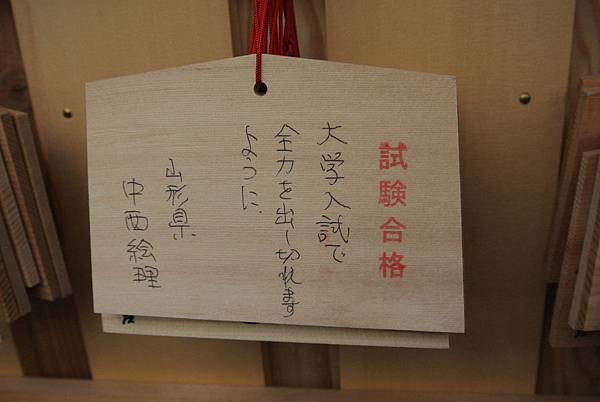 試験合格
大学入試で
全力を出し切れます
ように
山形県
中西絵理